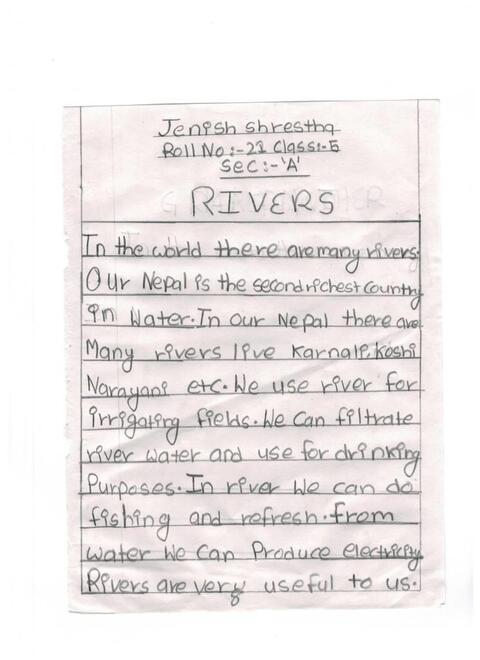 Jenish shrestha
Roll No:-23 Class:-5
Sec:-'A'
RIVERS
In the world there are many rivers.
Our Nepal is the second richest country
in Water. In our Nepal there are
Many rivers live Karnali, Koshi
Narayani etc. We use river for
irrigating fields. We Can filtrate
river water and use for drinking
Purposes. In river We can do
fishing and refresh. from
water We Can Produce electricity
Rivers are very useful to us.